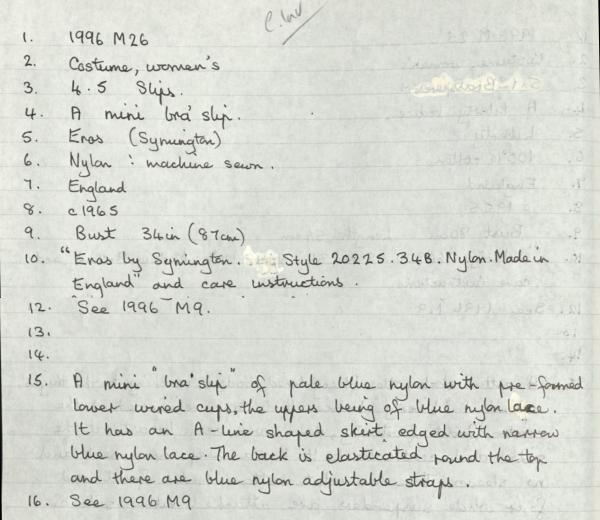 1. 1996 M26
2. Costume, women's
3. 4.5 Slips.
4. A mini bra' slip.
5. Eros (Symington)
6. Nylon : machine sewn.
7. England
8. c1965
9. Bust 34in (87cm)
10. "Eros by Symington. Style 20225.34B. Nylon. Made in
England" and care instructions.
12. See 1996 M9.
13.
14.
15. A mini "bra' slip" of pale blue nylon with pre-formed
lower wired cups, the uppers being of blue nylon lace.
It has an A-line shaped skirt edged with narrow
blue nylon lace. The back is elasticated round the top
and there are blue nylon adjustable straps.
16. See 1996 M9